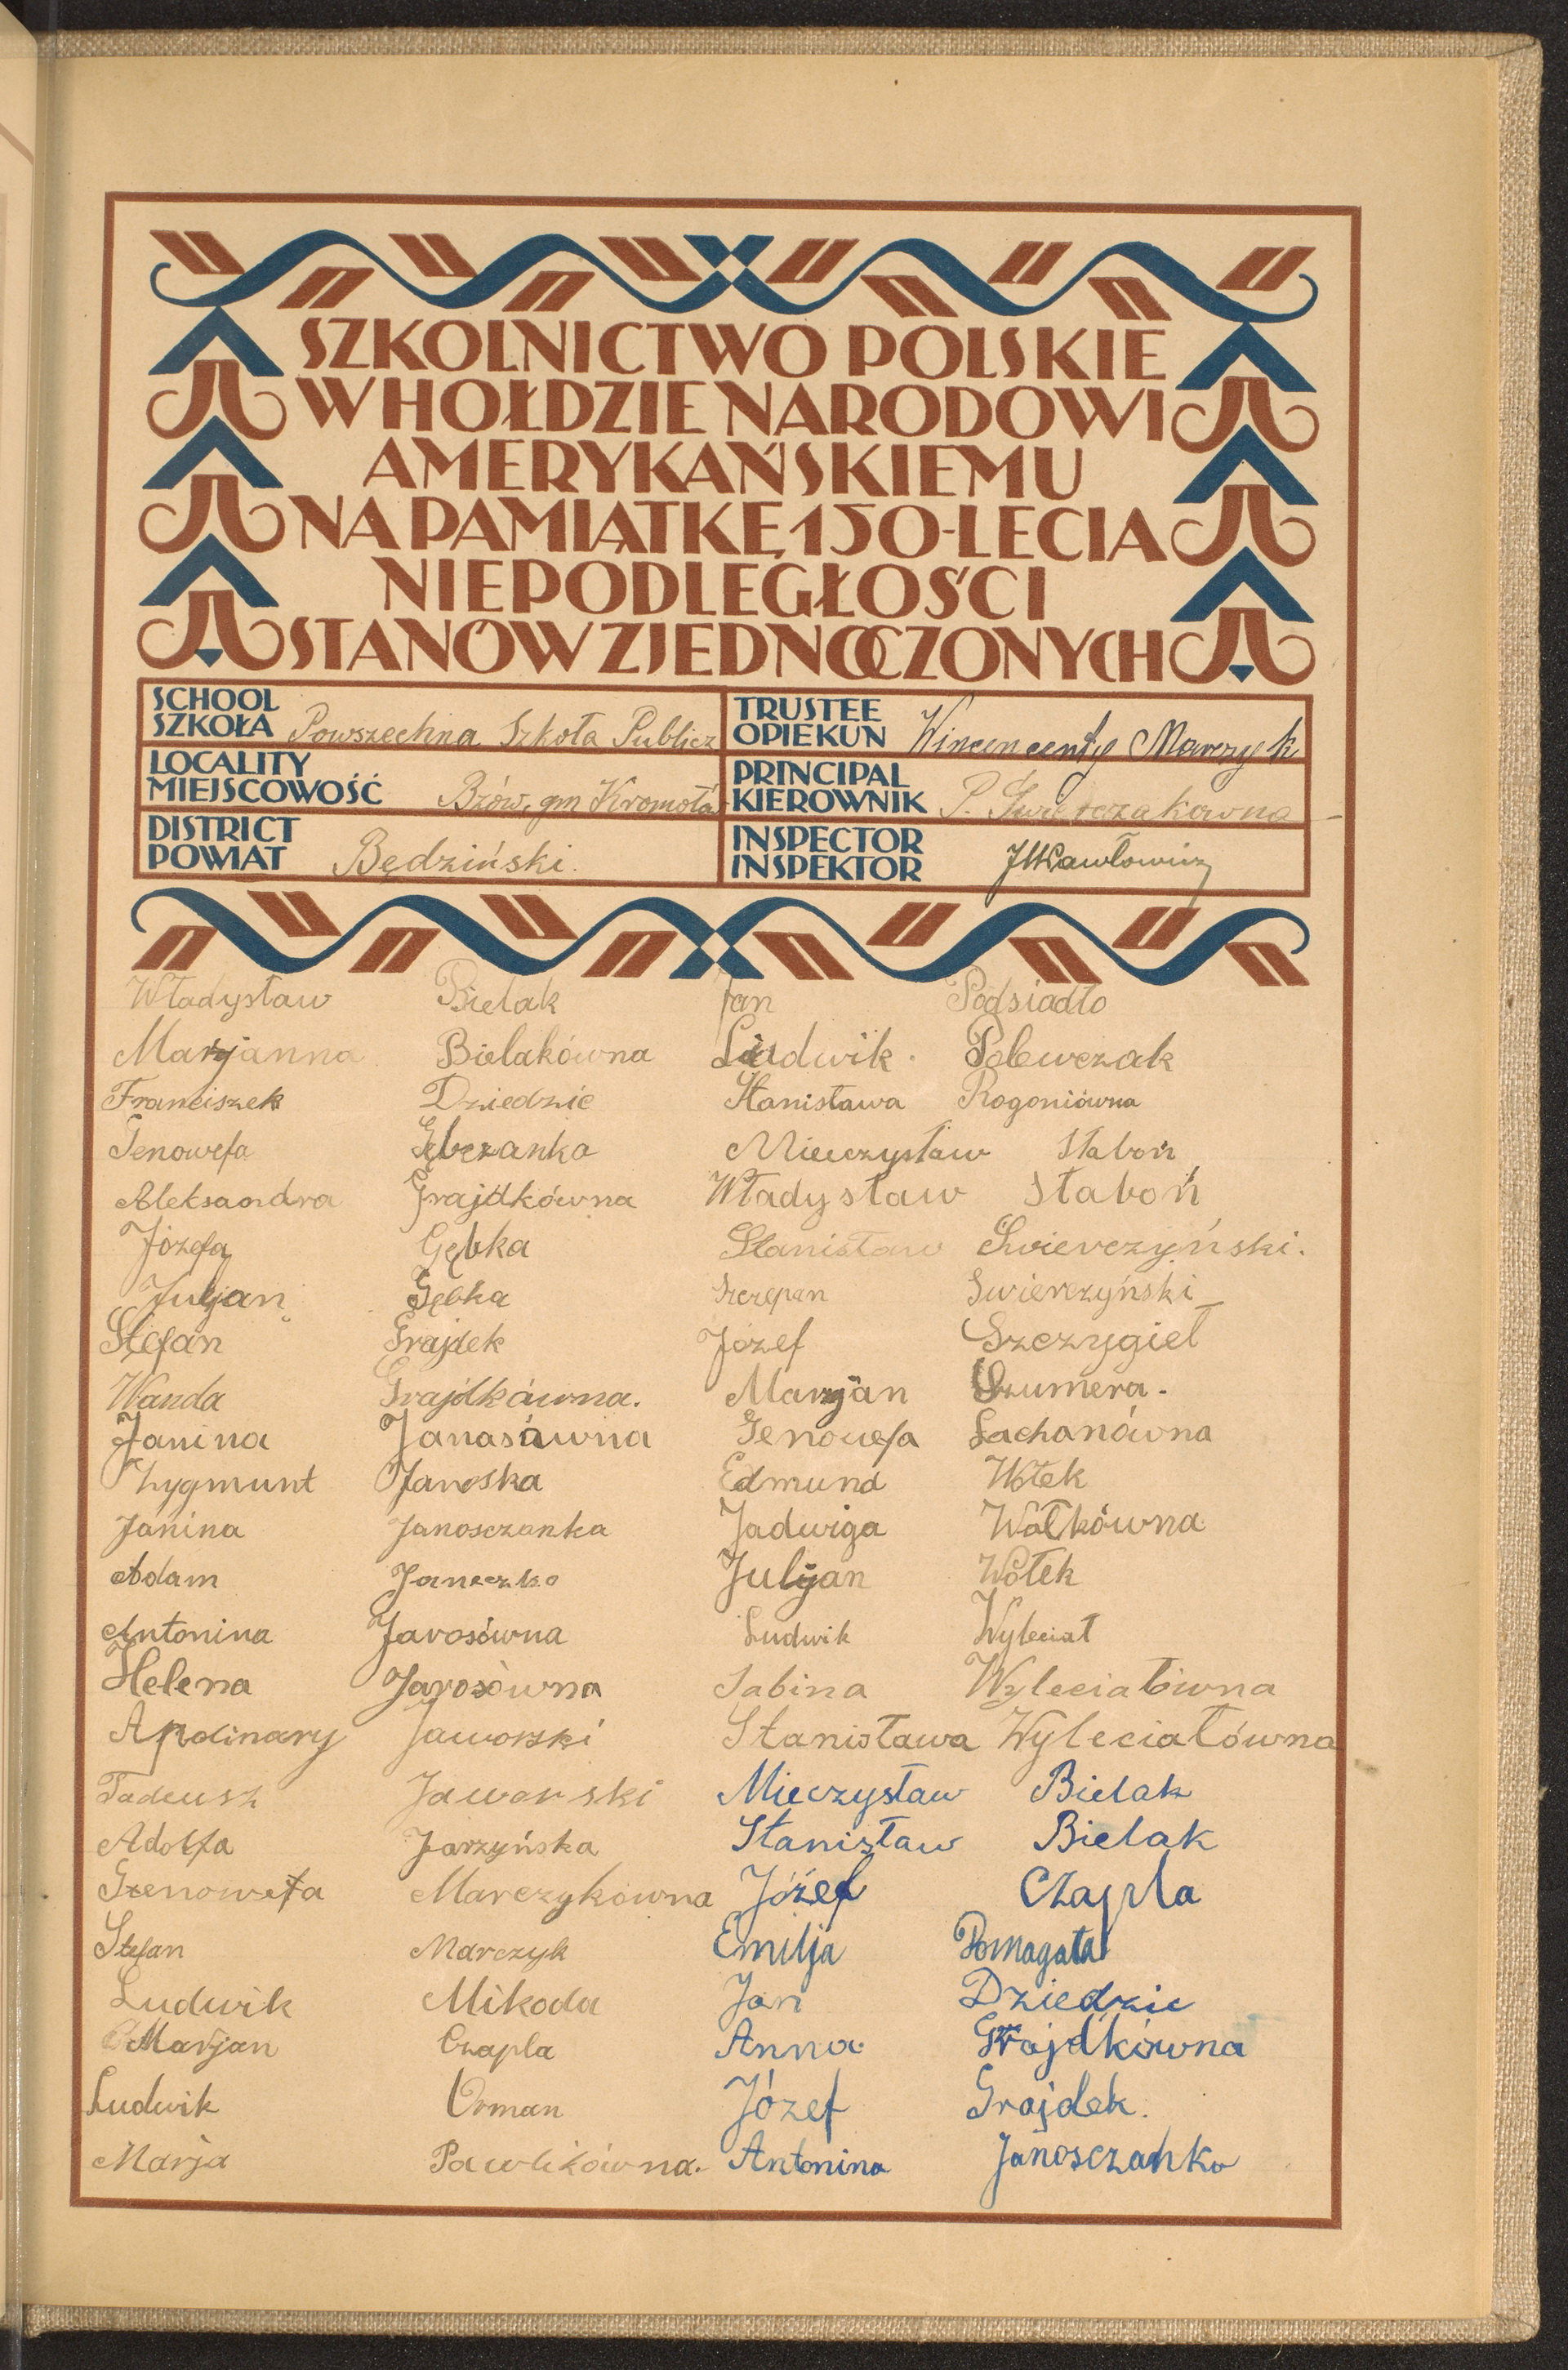 SZKOLNICTWO POLSKIE
W HOŁDZIE NARODOWI
AMERYKAŃSKIEMU
NA PAMIĄTKĘ 150-LECIA
NIEPODLEGŁOŚCI
STANÓW ZJEDNOCZONYCH
SCHOOL
SZKOŁA Powszechna Szkoła Publicz
LOCALITY
MIEJSCOWOŚĆ Bzów, gm Kromołów
DISTRICT
POWIAT Będziński.
TRUSTEE
OPIEKUN Wincencenty Marczyk
PRINCIPAL
KIEROWNIK P. Świerczakówna
INSPECTOR
INSPEKTOR
Władysław Bielak
Marjanna Bielakówna
Franciszek Dziedzic
Genowefa Gębczanka
Aleksandra Grajdkówna
Józefa Gębka
Juljan Gębka
Stefan Grajdek
Wanda Grajdkówna.
Janina Janasówna
Zygmunt Janoska
Janina Janosczanka
Adam Janeczko
Antonina Jarosówna
Helena Jarosówna
Apolinary Jaworski
Tadeusz Jaworski
Adolfa Jarzyńska
Genowefa Marczykówna
Stefan Marczyk
Ludwik Mikoda
Marjan Czapla
Ludwik Orman
Marja Pawlikówna.
Jan Podsiadło
Ludwik Polewczak
Stanisława Rogoniówna
Mieczysław Słaboń
Władysław Słaboń
Stanisław Świerczyński.
Szczepan Swierczyński
Józef Szczygieł
Marjan Szumera.
Genowefa Łachanówna
Edmund Wołek
Jadwiga Wołkówna
Juljan Wołek
Ludwik Wyleciał
Sabina Wyleciałówna
Stanisława Wyleciałówna
Mieczysław Bielak
Stanisław Bielak
Józef Czapla
Emilja Domagała
Jan Dziedzic
Anna Grajdkówna
Józef Grajdek.
Antonina Janosczanka